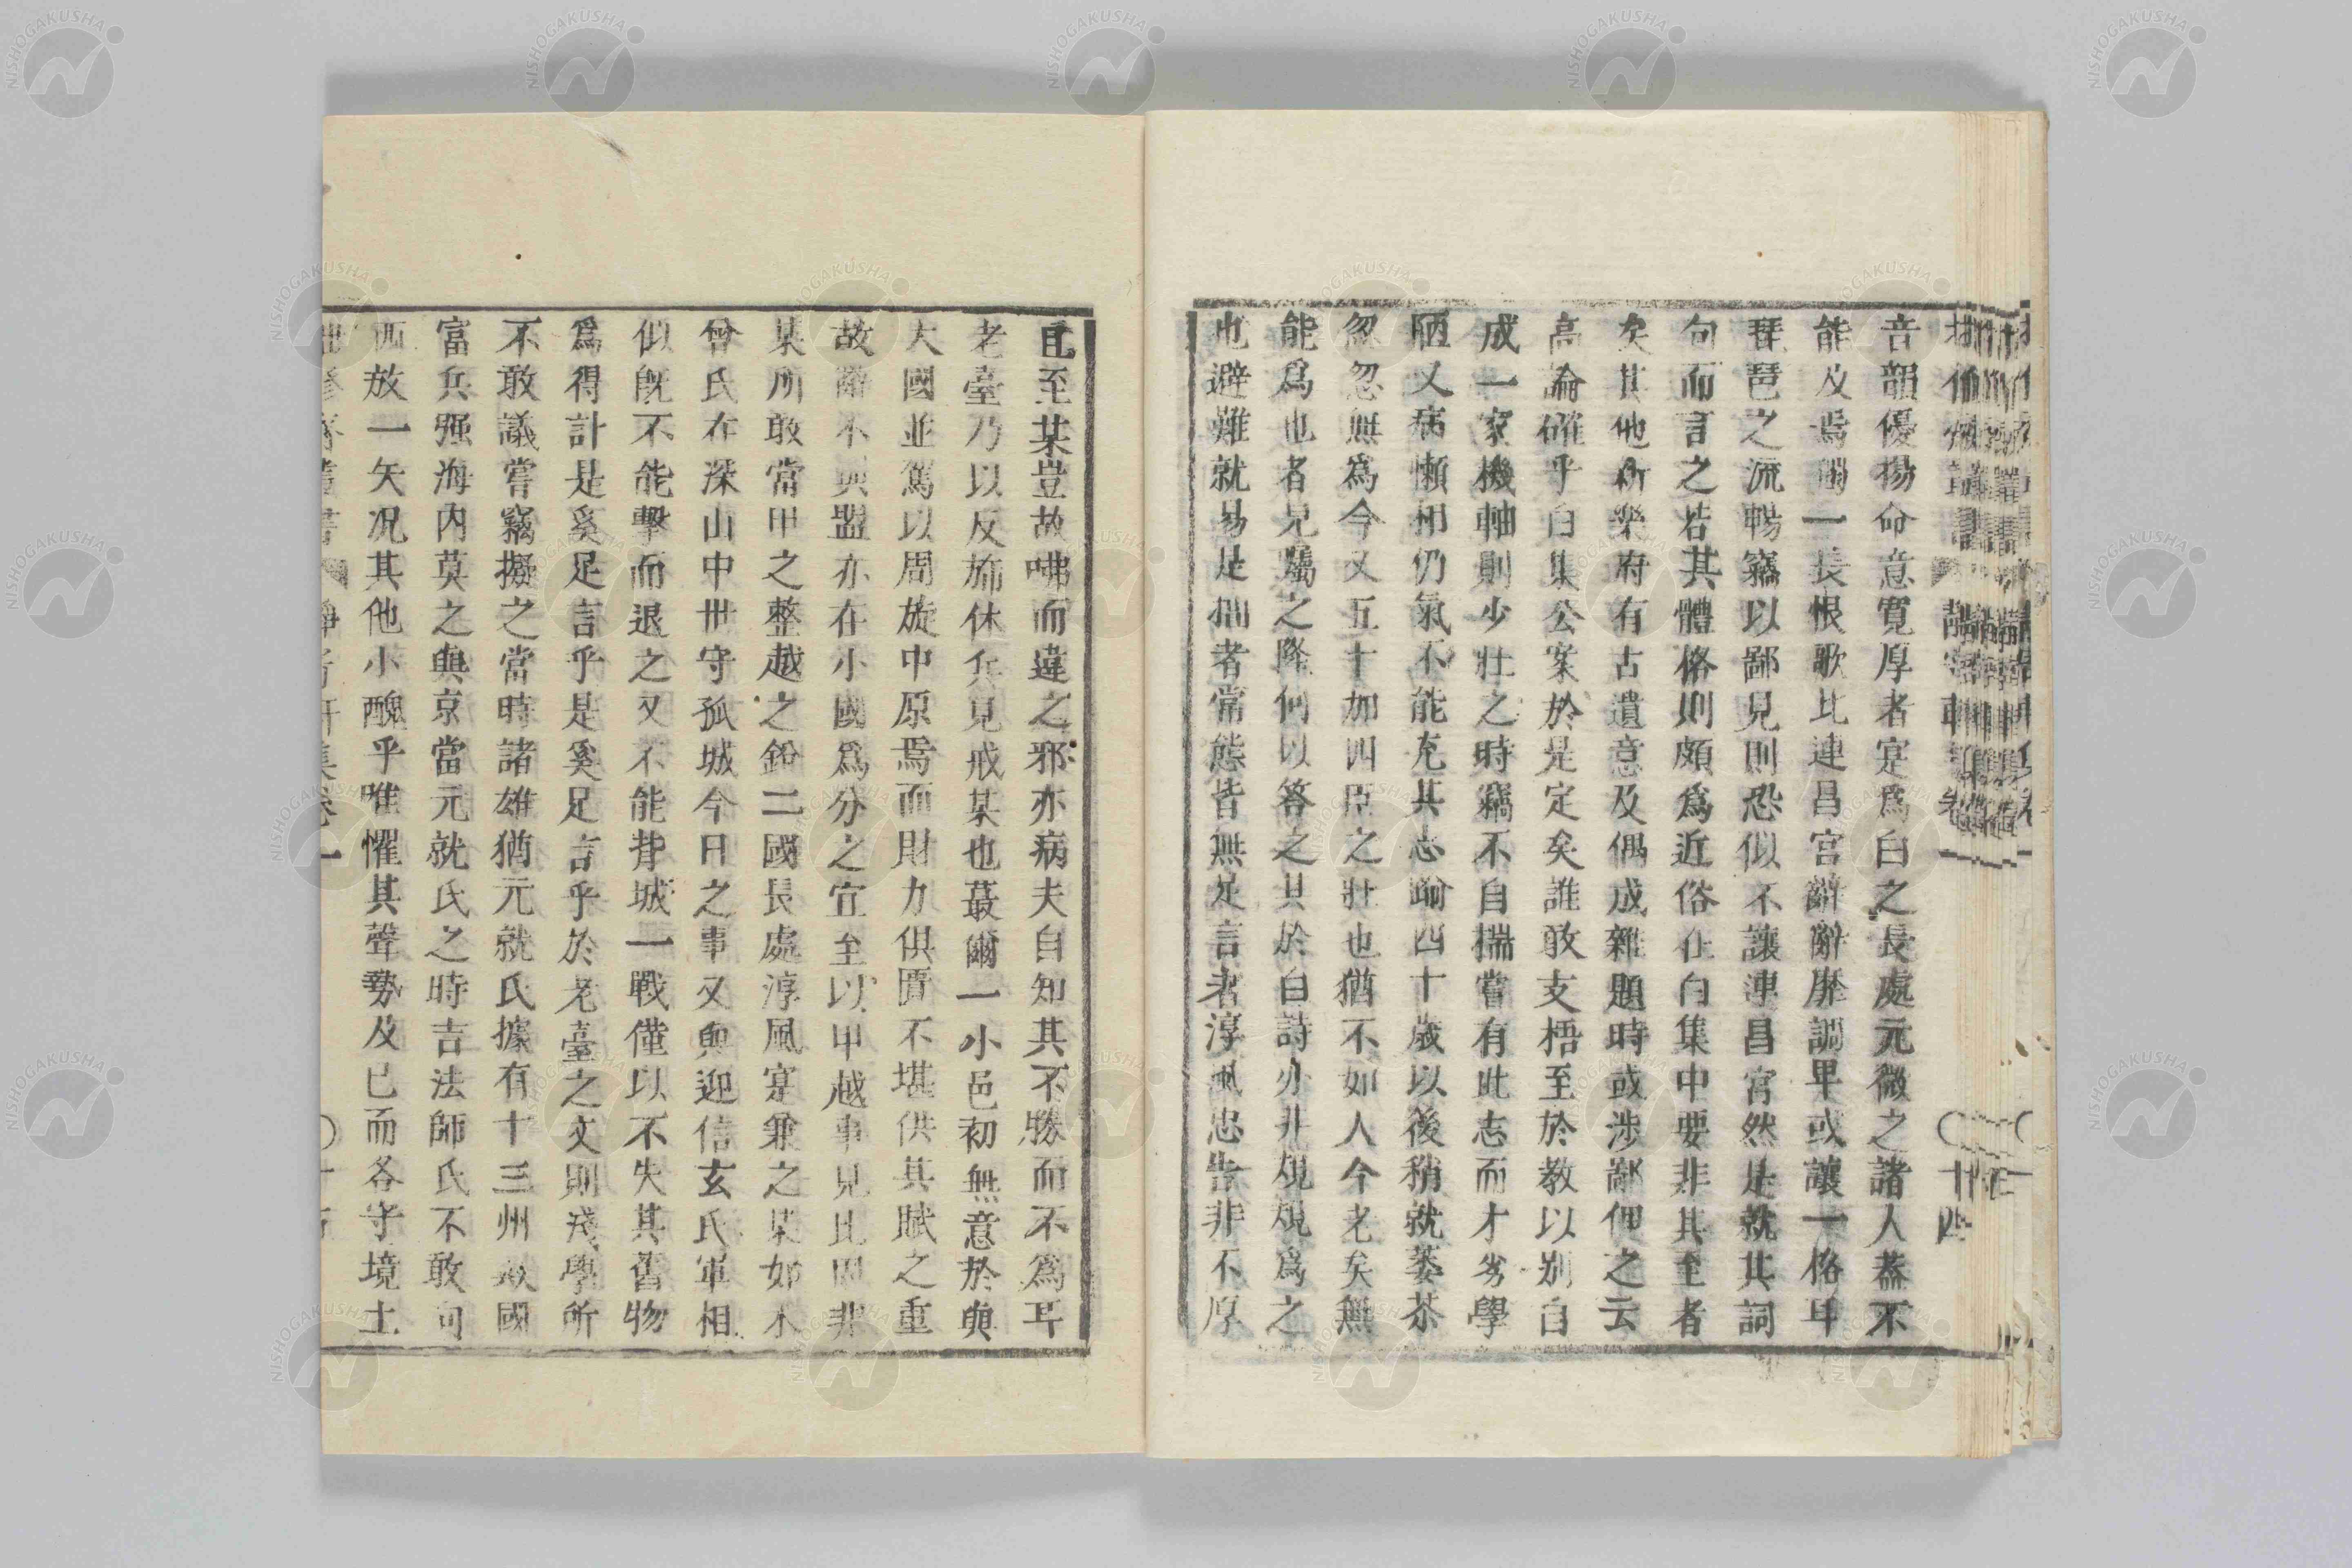 音韻優揚命意寬厚者寔爲白之長處元微之諸人蓋不
能及焉獨一長恨歌比連昌宮辭辭靡調卑或讓一格耳
琵琶之流暢竊以鄙見則恐似不讓連昌宮然是就其詞
句而言之若其體格則頗爲近俗在白集中要非其至者
矣其他新樂府有古遺意及偶成雜題時或涉鄙俚之云
高論確乎白集公案於是定矣誰敢支梧至於教以別自
成一家機軸則少壯之時竊不自揣嘗有此志而才劣學
陋又病懶相仍氣不能充其志踰四十歲以後稍就萎苶
忽忽無爲今又五十加四臣之壯也猶不如人今老矣無
能爲也者兄囑之隆何以答之其於白詩亦非規規爲之
也避難就易是拙者常態皆無足言者淳風忠告非不厚
且至某豈故咈而違之邪亦病夫自知其不勝而不爲耳
老臺乃以反旆休兵見戒某也蕞爾一小邑初無意於與
大國並駕以周旋中原焉而財力供匱不堪供其賦之重
故辭不與盟亦在小國爲分之宜至以甲越事見比固非
某所敢當甲之整越之銳二國長處淳風寔兼之某如木
曾氏在深山中世守孤城今日之事又與迎信玄氏軍相
似既不能擊而退之又不能背城一戰僅以不失其舊物
爲得計是奚足言乎是奚足言乎於老臺之文則淺學所
不敢議嘗竊擬之當時諸雄猶元就氏據有十三州之國
富兵强海內莫之與京當元就氏之時吉法師氏不敢向
西放一矢况其他小醜乎唯懼其聲勢及已而各守境土